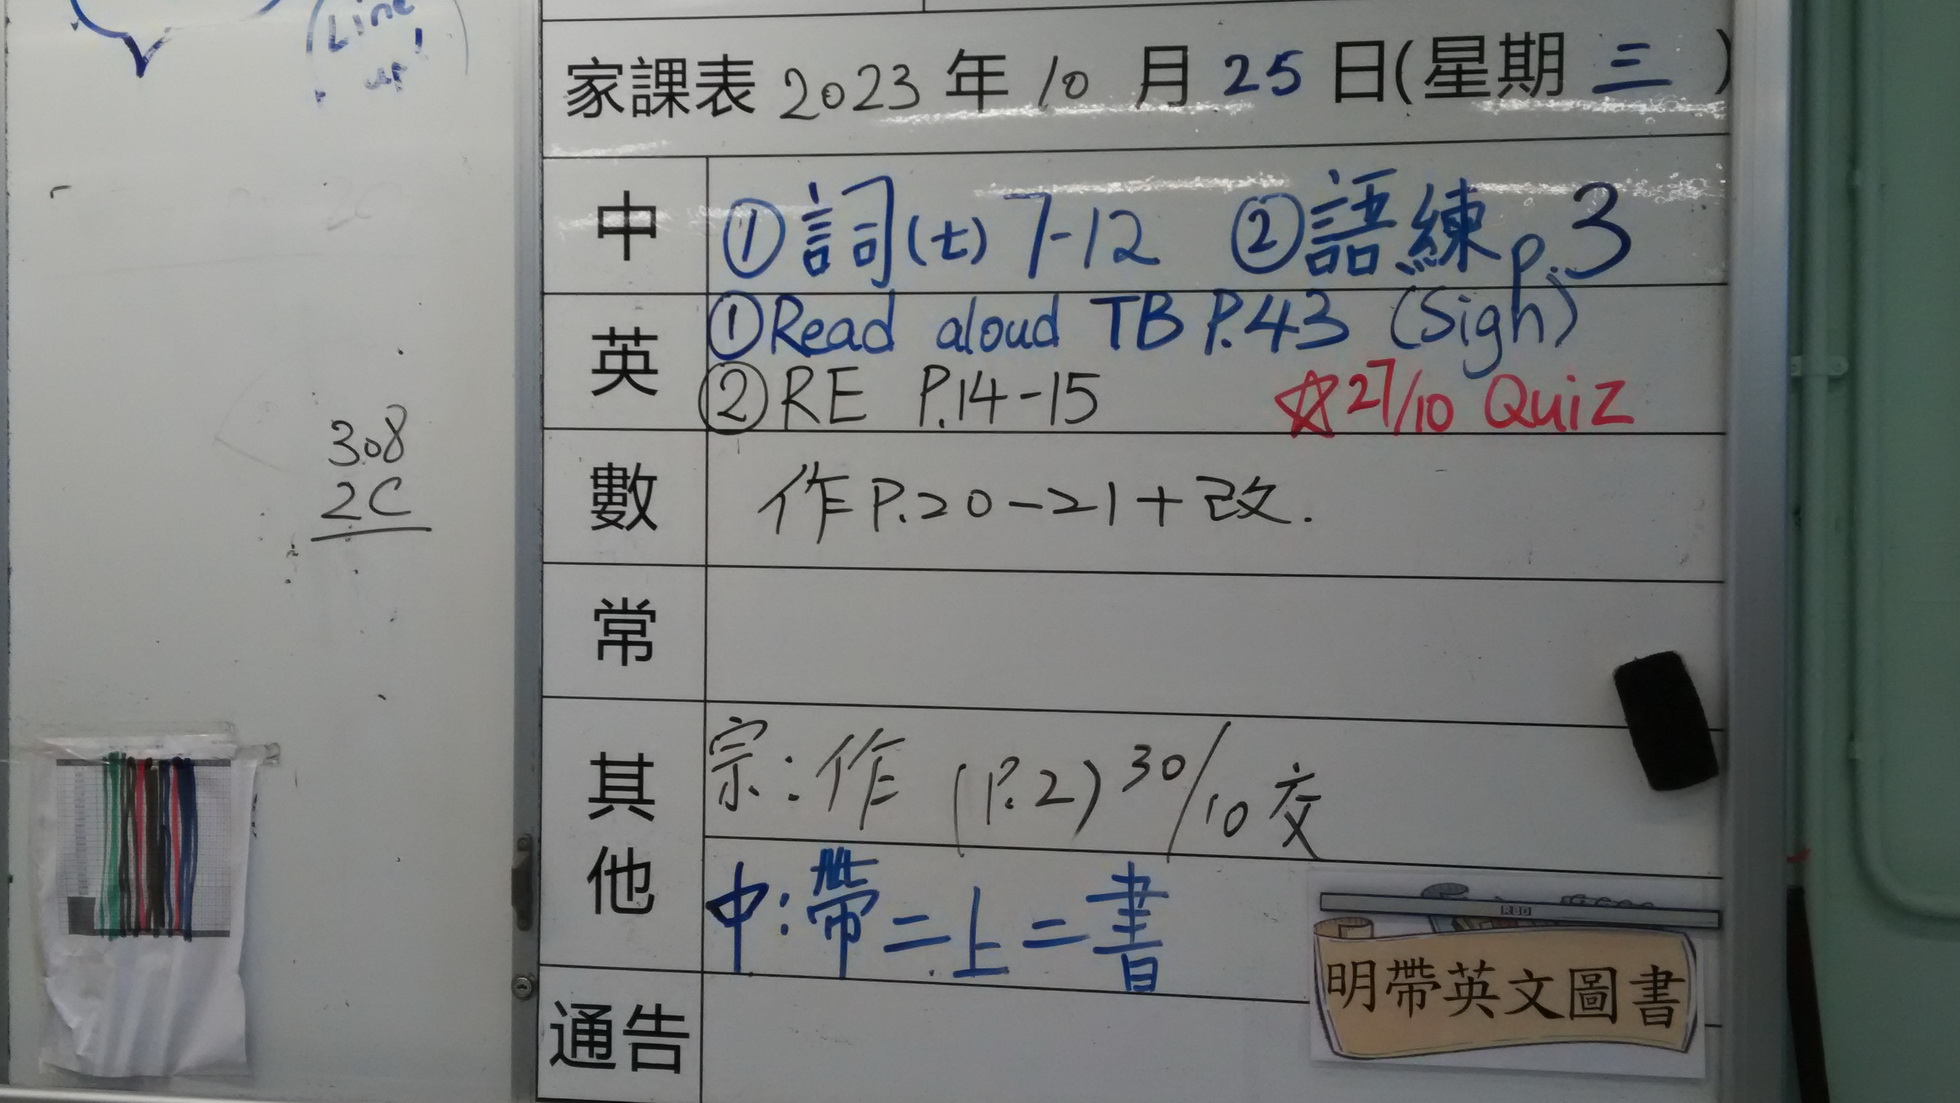 Line
up!
家課表 2023 年 10 月 25 日(星期 三 )
中 ①詞(七) 7-12 ②語練 p.3
英 ①Read aloud TB P.43 (Sigh)
②RE P.14-15 ☆27/10 Quiz
數 作 P.20-21+改.
常
其他 宗:作 (P.2) 30/10 交
中:帶二上二書
通告
明帶英文圖書
308
2C